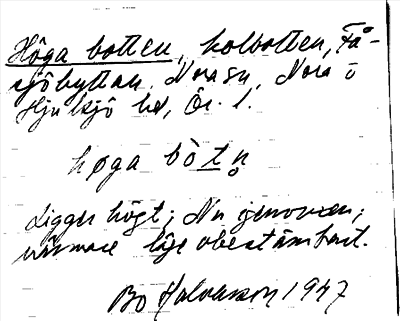 Höga botten, kolbotten, Få-
sjöhyttan, Nora sn, Nora o
Hjulsjö hd, Ör. l.
høga bòtn̥
Ligger högt; Nu igenvuxen;
närmare läge obestämbart.
Bo Halvarsson 1947